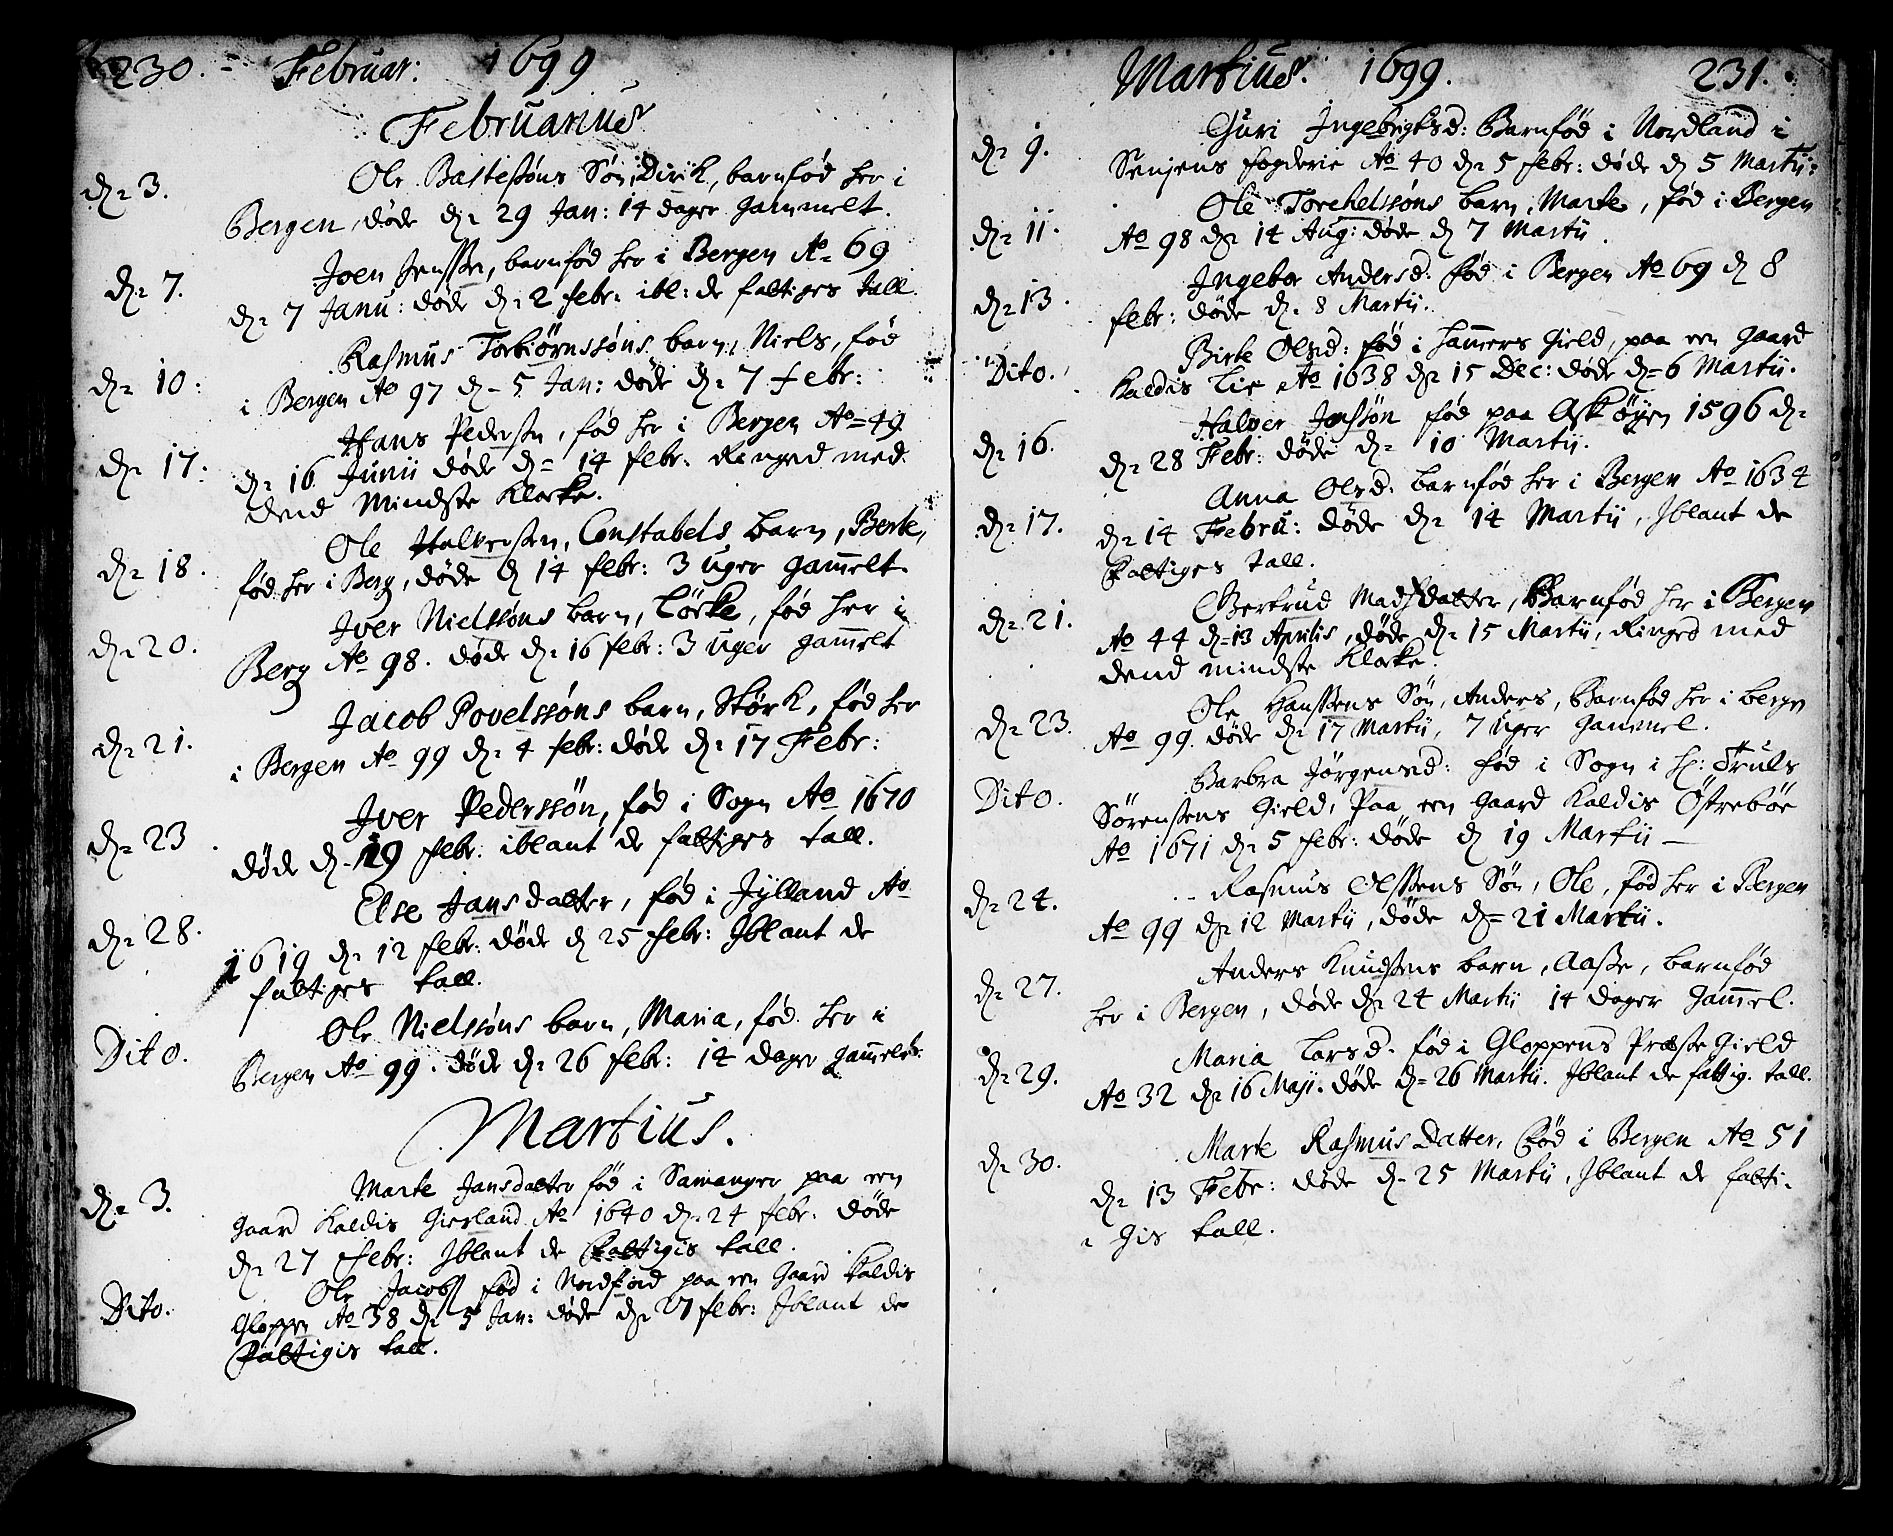 230. Februar: 1699
Februarius
dn 3. Ole Bastessøns Søn, Dirik, barnfød her i
Bergen, døde dn 29 Jan: 14 dager gammelt.
dn 7. Joen Jenssen, barnfød her i Bergen Ao 69
dn 7 Janu: døde dn 2 febr: ibl: de fattiges tall.
dn 10: Rasmus Torbiørnssøns barn, Niels, fød
i Bergen Ao 97 dn 5 Jan: døde dn 7 febr:
dn 17: Hans Pedersen, fød her i Bergen Ao 49
dn 16 Junii døde dn 14 febr: Ringed med
dend Mindste Klocke.
dn 18. Ole Halversen, Constabels barn, Berte,
fød her i Berg, døde d 14 febr: 3 uger gam̄elt.
dn 20. Iver Nielssøns barn, Lörke, fød her i
Berg Ao 98. døde dn 16 febr: 3 uger gam̄elt
dn 21. Jacob Povelssøns barn, Størk, fød her
i Bergen Ao 99 dn 4 febr: døde dn 17 Febr:
dn 23 Iver Pederssøn, fød i Sogn Ao 1670
døde dn 19 febr. iblant de fattiges tall.
dn 28. Else Jansdatter, fød i Jylland Ao
1619 dn 12 febr: døde d 25 febr: Iblant de
fattiges tall.
Dito. Ole Nielssøns barn, Maria, fød her i
Bergen Ao 99. døde dn 26 febr: 14 dager gam̄elt.
Martius.
dn 3. Marte Jansdatter fød i Samanger paa een
gaard kaldis Gierland Ao 1640 dn 24 febr. døde
dn 27 febr: Iblant de fattigis tall.
Dito. Ole Jacobss fød i Nordfiord paa een gaard kaldis
Gloppen Ao 38 dn 5 Jan: døde dn 27 febr: Iblant de
fattigis tall.
Martius. 1699. 231.
dn 9. Guri Ingebrigtsd: Barnfød i Nordland i
Senjens fogderie Ao 40 dn 5 febr: døde d 5 Martii:
dn 11. Ole Torchelssøns barn, Marte, fød i Bergen
Ao 98 dn 14 Aug: døde d 7 Martii.
dn 13. Ingebor Andersd. fød i Bergen Ao 69 d 8
febr: døde dn 8 Martii.
Dito. Birte Olsd: fød i Ham̄ers Gield, paa een gaard
kaldis Lie Ao 1638 dn 15 Dec: døde dn 6 Martii.
dn 16. Halver Jonssøn fød paa Askøyen 1596 dn
dn 28 Febr: døde dn 10 Martii.
dn 17. Anna Olsd: barnfød her i Bergen Ao 1634
dn 14 Febru: døde dn 14 Martii, Iblant de
fattiges tall.
dn 21. Gertrud Madsdatter, Barnfød her i Bergen
Ao 44 dn 13 Aprilis, døde dn 15 Martii, Ringed med
dend mindste Klocke.
dn 23. Ole Hanssens Søn, Anders, Barnfød her i bergn
Ao 99. døde dn 17 Martii, 7 uger gammel.
Dito. Barbra Jørgensd: fød i Sogn i H: Truls
Sörensens Gield, paa een gaard kaldis Östrebøe
Ao 1671 dn 5 febr: døde d 19 Martii —
dn 24. Rasmus Olssens Søn, Ole, fød her i Bergen
Ao 99 dn 12 Martii, døde dn 21 Martii.
dn 27. Anders Knudsens barn, Aasse, barnfød
her i Bergen, døde dn 24 Martii 14 dager gam̄el.
dn 29. Maria Larsd. fød i Gloppens Præste Gield
Ao 32 dn 16 Maji. døde dn 26 Martii. Iblant de fattig. tall.
dn 30. Marte Rasmus Datter, fød i Bergen Ao 51
dn 13 Febr: døde dn 25 Martii, Iblant de fatti-
gis tall.